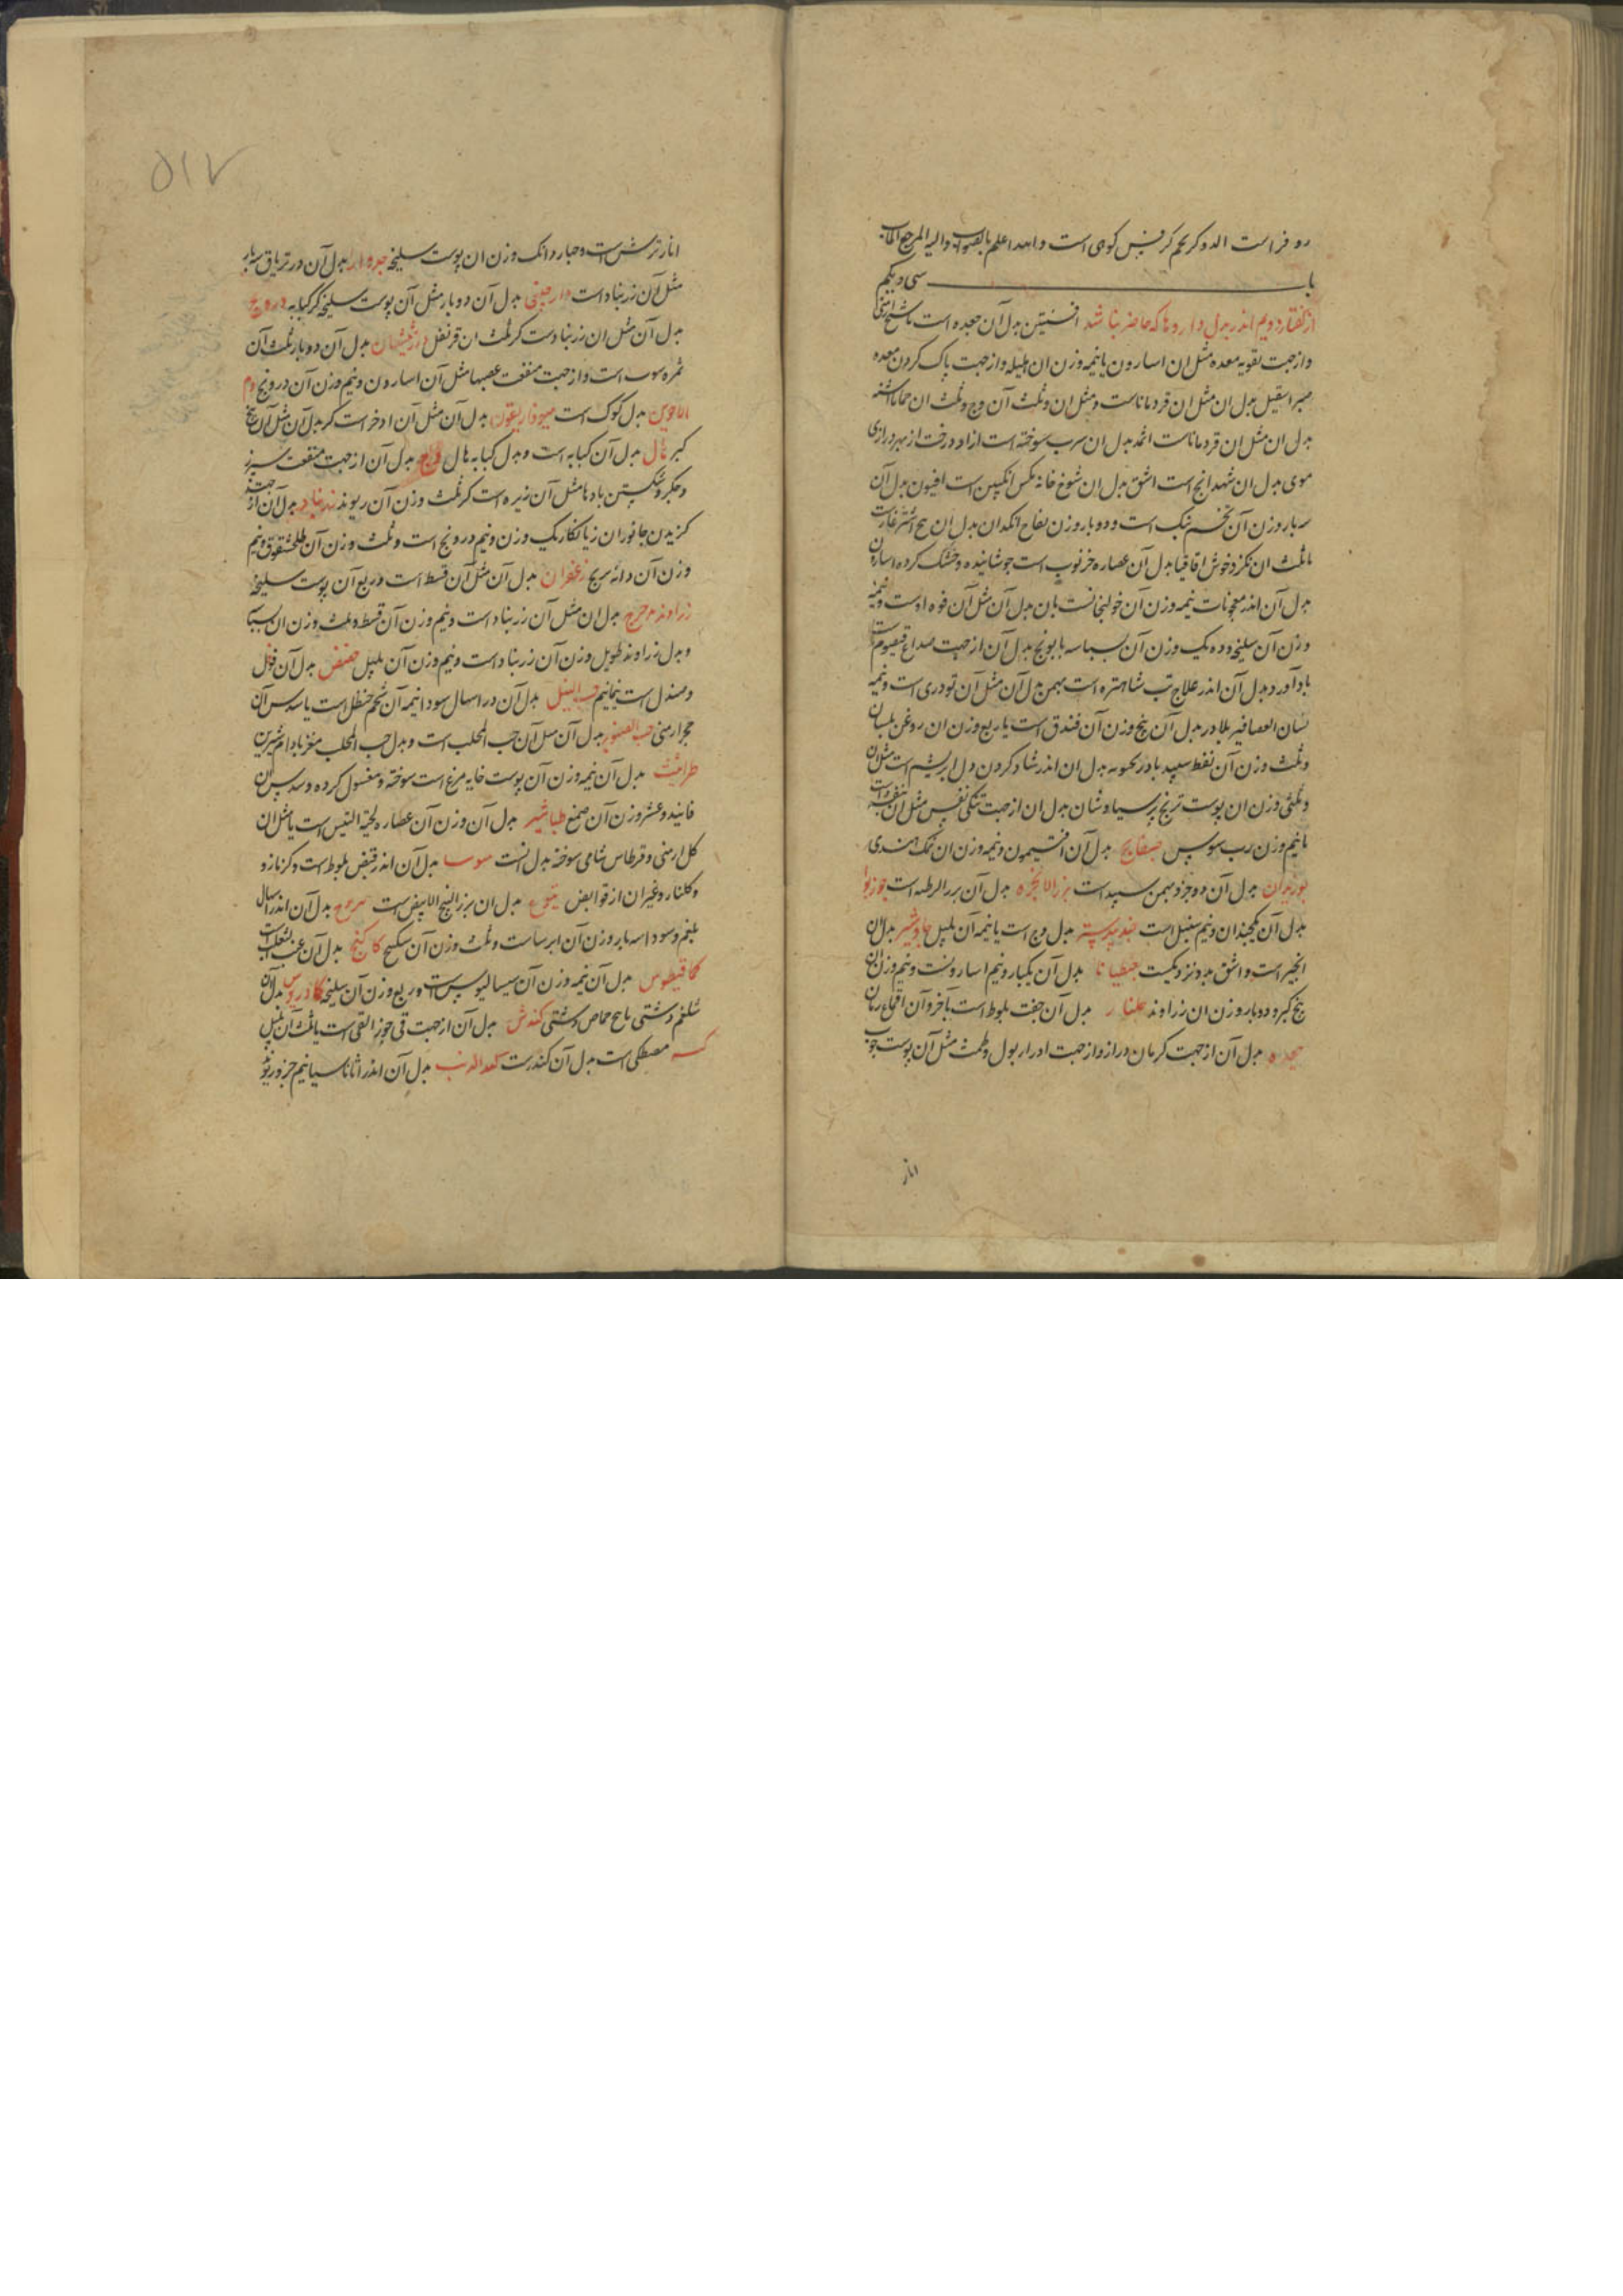 رو فراست الدوکریم کرفس کوهی است والله اعلم بالصواب والیه المرجع المآب
باب سی و یکم
از گفتار دویم اندر بدل داروها که حاضر نباشد افسنتین بدل آن جعده است یا شیح ارمنی
واز جهت تقویه معده مثل ان اسارون یا نیمه وزن ان هلیله واز جهت پاک کردن معده
صبر اسقیل بدل ان مثل ان قردماناست ومثل ان وثلث آن وج وثلث ان حماما اشنه
بدل ان مثل ان قردماناست اثمد بدل ان سرب سوخته است ازاد درخت از بهر درازی
موی بدل ان شهدانج است اشق بدل ان شوغ خانه مکس انکبین است افیون بدل آن
سه بار وزن آن تخم بنک است ودوبار وزن تفاح انکدان بدل ان
ثلث ان اقاقیا بدل آن عصاره خرنوب است جوشانیده وخشک کرده اسارون
بدل آن اندر معجونات نیمه وزن آن خولنجانست بان بدل آن مثل آن فوه اوست ونیمه
وزن آن سلیخه وده یک وزن آن بسباسه بابونج بدل آن از جهت صداع قیصوم است
بادآورد بدل آن اندر علاج تب شاهتره است بهمن بدل آن مثل آن تودری است ونیمه
لسان العصافیر بلادر بدل آن پنج وزن آن فندق است یا ربع وزن ان روغن بلسان
وثلث وزن آن نفط سپید بادرنجبویه بدل ان اندر شاد کردن دل ابریشم است مثل ان
وثلثی وزن ان پوست ترنج پرسیاوشان بدل ان از جهت تنکی نفس مثل ان بنفشه است
با نیم وزن رب سوس بسفایج بدل آن افتیمون ونیمه وزن ان نمک هندی
بوزیدان بدل آن دو جزو بهمن سپید است بزر الانجره بدل آن بزر الرطبه است جوزبوا
بدل آن یکچندان ونیم سنبل است جندبیدسته بدل وج است یا نیمه آن پلپل جاوشیر بدل ان
انجیر است واشق بدو نزدیکست جنطیانا بدل آن یکبار ونیم اسارونست ونیم وزن ان
بیخ کبر ودوبار وزن ان زراوند جلنار بدل آن جفت بلوط است یا خرد آن اقماع رمان
جعده بدل آن از جهت کرمان دراز واز جهت ادرار بول وطمث مثل آن پوست چوب
انار
۵۱۷
انار ترش است وچهار دانک وزن ان پوست سلیخه جدوار بدل آن در تریاق سه بار
مثل آن زرنباد است دارچینی بدل آن دوبار مثل آن پوست سلیخه کرکبابه درونج
بدل آن مثل ان زرنبادست کر ثلث ان قرنفل دارشیشعان بدل آن دوبار ثلث آن
ثمره است واز جهت منفعت عصبها مثل آن اسارون ونیم وزن آن درونج دم
الاخوین بدل کوک است هیوفاریقون بدل آن مثل آن اذخر است کر بدل آن مثل آن بیخ
کبر هال بدل آن کبابه است وبدل کبابه هال وج بدل آن از جهت منفعت سپرز
وجکر وشکستن بادها مثل آن زیره است کر ثلث وزن آن ریوند زرنباد بدل آن از جهت
کزیدن جانوران زیانکار یک وزن ونیم درونج است وثلث وزن آن طلخشقوق ونیم
وزن آن دانه ترنج زعفران بدل آن مثل آن قسط است وربع آن پوست سلیخه
زراوند مدحرج بدل ان مثل آن زرنباد است ونیم وزن آن قسط وثلث وزن ان
وبدل زراوند طویل وزن آن زرنباد است ونیم وزن آن پلپل حضض بدل آن فوفل
وصندل است نیمانیم حب النیل بدل آن در اسهال سودا نیمه آن شحم حنظل است یا سدس آن
حجر ارمنی حب الصنوبر بدل آن مثل آن حب المحلب است وبدل حب المحلب مغز بادام شیرین
طراثیث بدل آن نیمه وزن آن پوست خایه مرغ است سوخته ومغسول کرده وسدس ان
وعشر وزن آن صمغ طباشیر بدل آن وزن آن عصاره لحیة التیس است یا مثل ان
کل ارمنی وقرطاس شامی سوخته بدل انست بدل آن اندر قبض بلوط است وکزمازو
وکلنار وغیر ان از قوابض یبروج بدل ان بزر البنج الابیض است بدل آن اندر اسهال
بلغم وسودا سه بار وزن آن ایرساست وثلث وزن آن سکبینج کاکنج بدل آن عنب الثعلب است
کمافیطوس بدل آن نیمه وزن آن سیسالیوس است وربع وزن آن سلیخه کمادریوس بدل آن
شلغم دشتی یا بیخ حماض دشتی کندش بدل آن از جهت قی جوز القی است یا ثلث آن پلپل
مصطکی است بدل آن کندرست بدل آن اندر